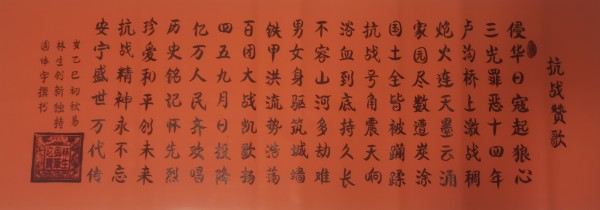 抗战赞歌
侵华日寇起狼心
三光罪恶十四年
卢沟桥上激战稠
炮火连天墨云涌
家园尽数遭炭涂
国土全皆被躏蹂
抗战号角震天响
浴血到底持久长
不容山河多劫难
男女身驱筑城墙
铁甲洪流势浩荡
百团大战凯歌扬
四五九月日投降
亿万人民齐欢唱
历史铭记怀先烈
珍爱和平创未来
抗战精神永不忘
安宁盛世万代传
岁乙巳初秋易
林生创新独转
圆体字撰书